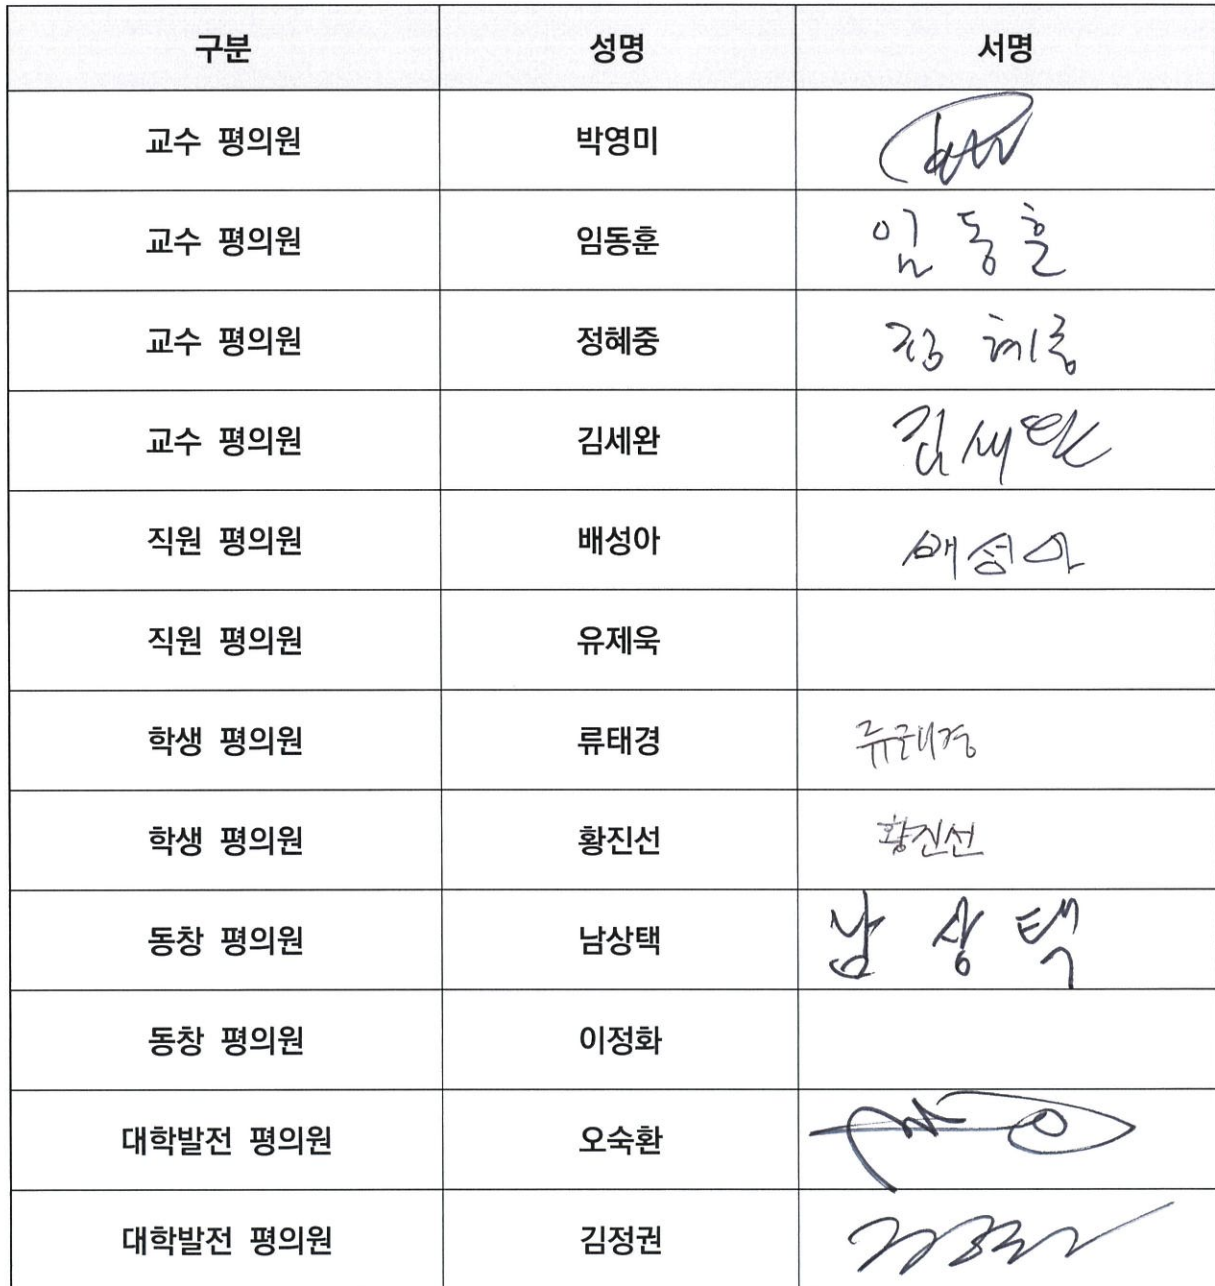 구분 성명 서명
교수 평의원 박영미
교수 평의원 임동훈 임동훈
교수 평의원 정혜중 정혜중
교수 평의원 김세완 김세완
직원 평의원 배성아 배성아
직원 평의원 유제욱
학생 평의원 류태경 류태경
학생 평의원 황진선 황진선
동창 평의원 남상택 남상택
동창 평의원 이정화
대학발전 평의원 오숙환
대학발전 평의원 김정권